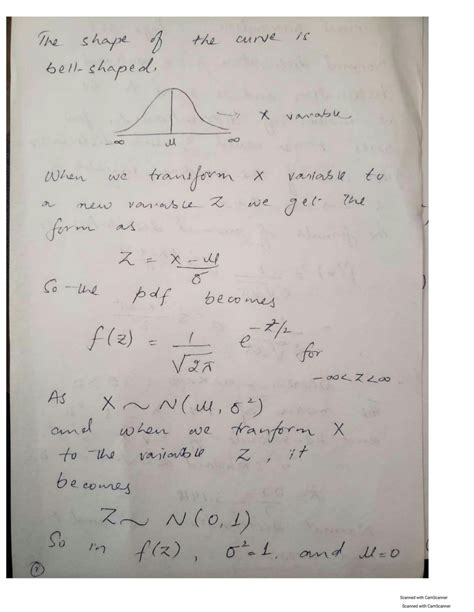 The shape of the curve is
bell-shaped.
→ X variable
-∞ μ ∞
When we transform X variable to
a new variable Z we get the
form as
Z = X - μ / σ
So the pdf becomes
f(z) = 1/√2π e^-z²/2 for
-∞<Z<∞.
As X ~ N(μ, σ²)
and when we tranform X
to the variable Z, it
becomes
Z ~ N(0,1)
So in f(z), σ²=1, and μ=0
Scanned with CamScanner
Scanned with CamScanner